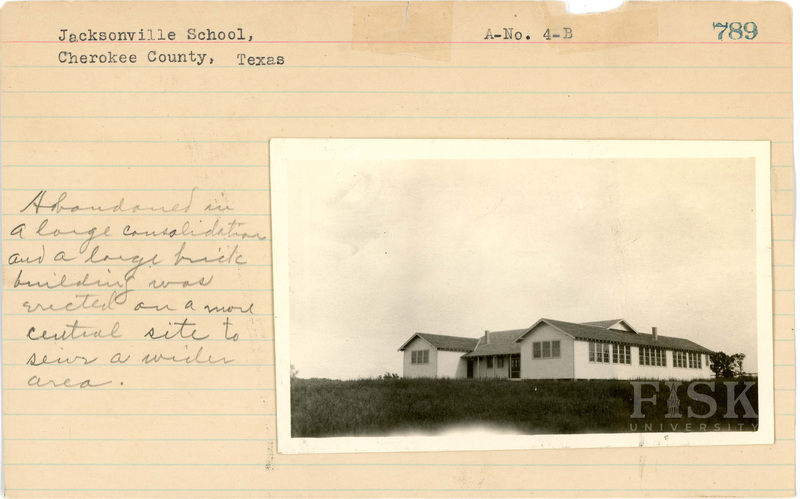 Jacksonville School, A-No. 4-B 789
Cherokee County, Texas
Abandoned in
a large consolidation
and a large brick
building was
erected on a more
central site to
serve a wider
area.
FISK
UNIVERSITY